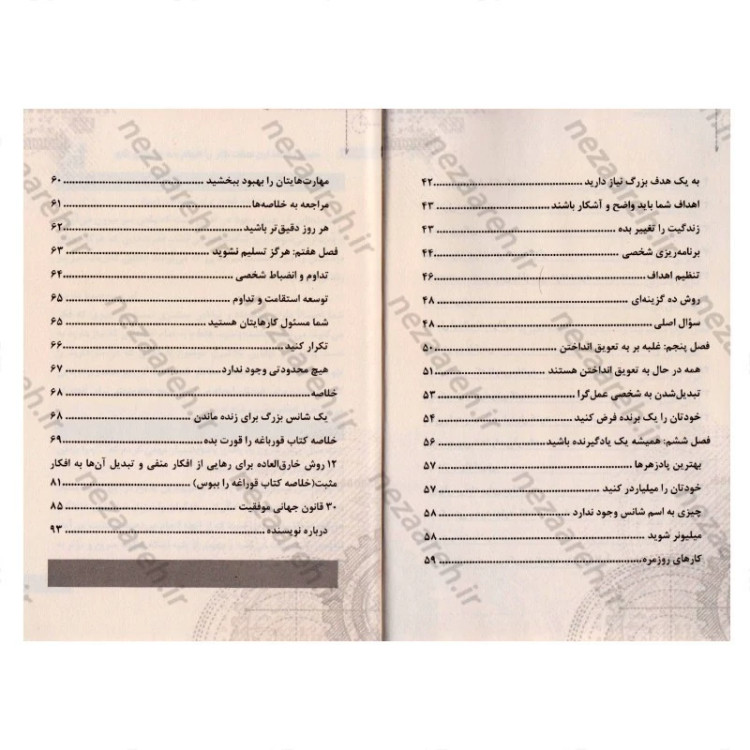 به یک هدف بزرگ نیاز دارید ..... ۴۲
اهداف شما باید واضح و آشکار باشند ..... ۴۳
زندگیت را تغییر بده ..... ۴۳
برنامه‌ریزی شخصی ..... ۴۴
تنظیم اهداف ..... ۴۶
روش ده گزینه‌ای ..... ۴۸
سؤال اصلی ..... ۴۸
فصل پنجم: غلبه بر به تعویق انداختن ..... ۵۰
همه در حال به تعویق انداختن هستند ..... ۵۱
تبدیل‌شدن به شخصی عمل‌گرا ..... ۵۳
خودتان را یک برنده فرض کنید ..... ۵۴
فصل ششم: همیشه یک یادگیرنده باشید ..... ۵۶
بهترین پادزهرها ..... ۵۷
خودتان را میلیاردر کنید ..... ۵۷
چیزی به اسم شانس وجود ندارد ..... ۵۸
میلیونر شوید ..... ۵۸
کارهای روزمره ..... ۵۹
مهارت‌هایتان را بهبود ببخشید ..... ۶۰
مراجعه به خلاصه‌ها ..... ۶۱
هر روز دقیق‌تر باشید ..... ۶۲
فصل هفتم: هرگز تسلیم نشوید ..... ۶۳
تداوم و انضباط شخصی ..... ۶۴
توسعه استقامت و تداوم ..... ۶۵
شما مسئول کارهایتان هستید ..... ۶۵
تکرار کنید ..... ۶۶
هیچ محدودیتی وجود ندارد ..... ۶۷
خلاصه ..... ۶۸
یک شانس بزرگ برای زنده ماندن ..... ۶۸
خلاصه کتاب قورباغه را قورت بده ..... ۶۹
۱۲ روش خارق‌العاده برای رهایی از افکار منفی و تبدیل آن‌ها به افکار
مثبت(خلاصه کتاب قوراغه را ببوس) ..... ۸۱
۳۰ قانون جهانی موفقیت ..... ۸۵
درباره نویسنده ..... ۹۳
nezaareh.ir